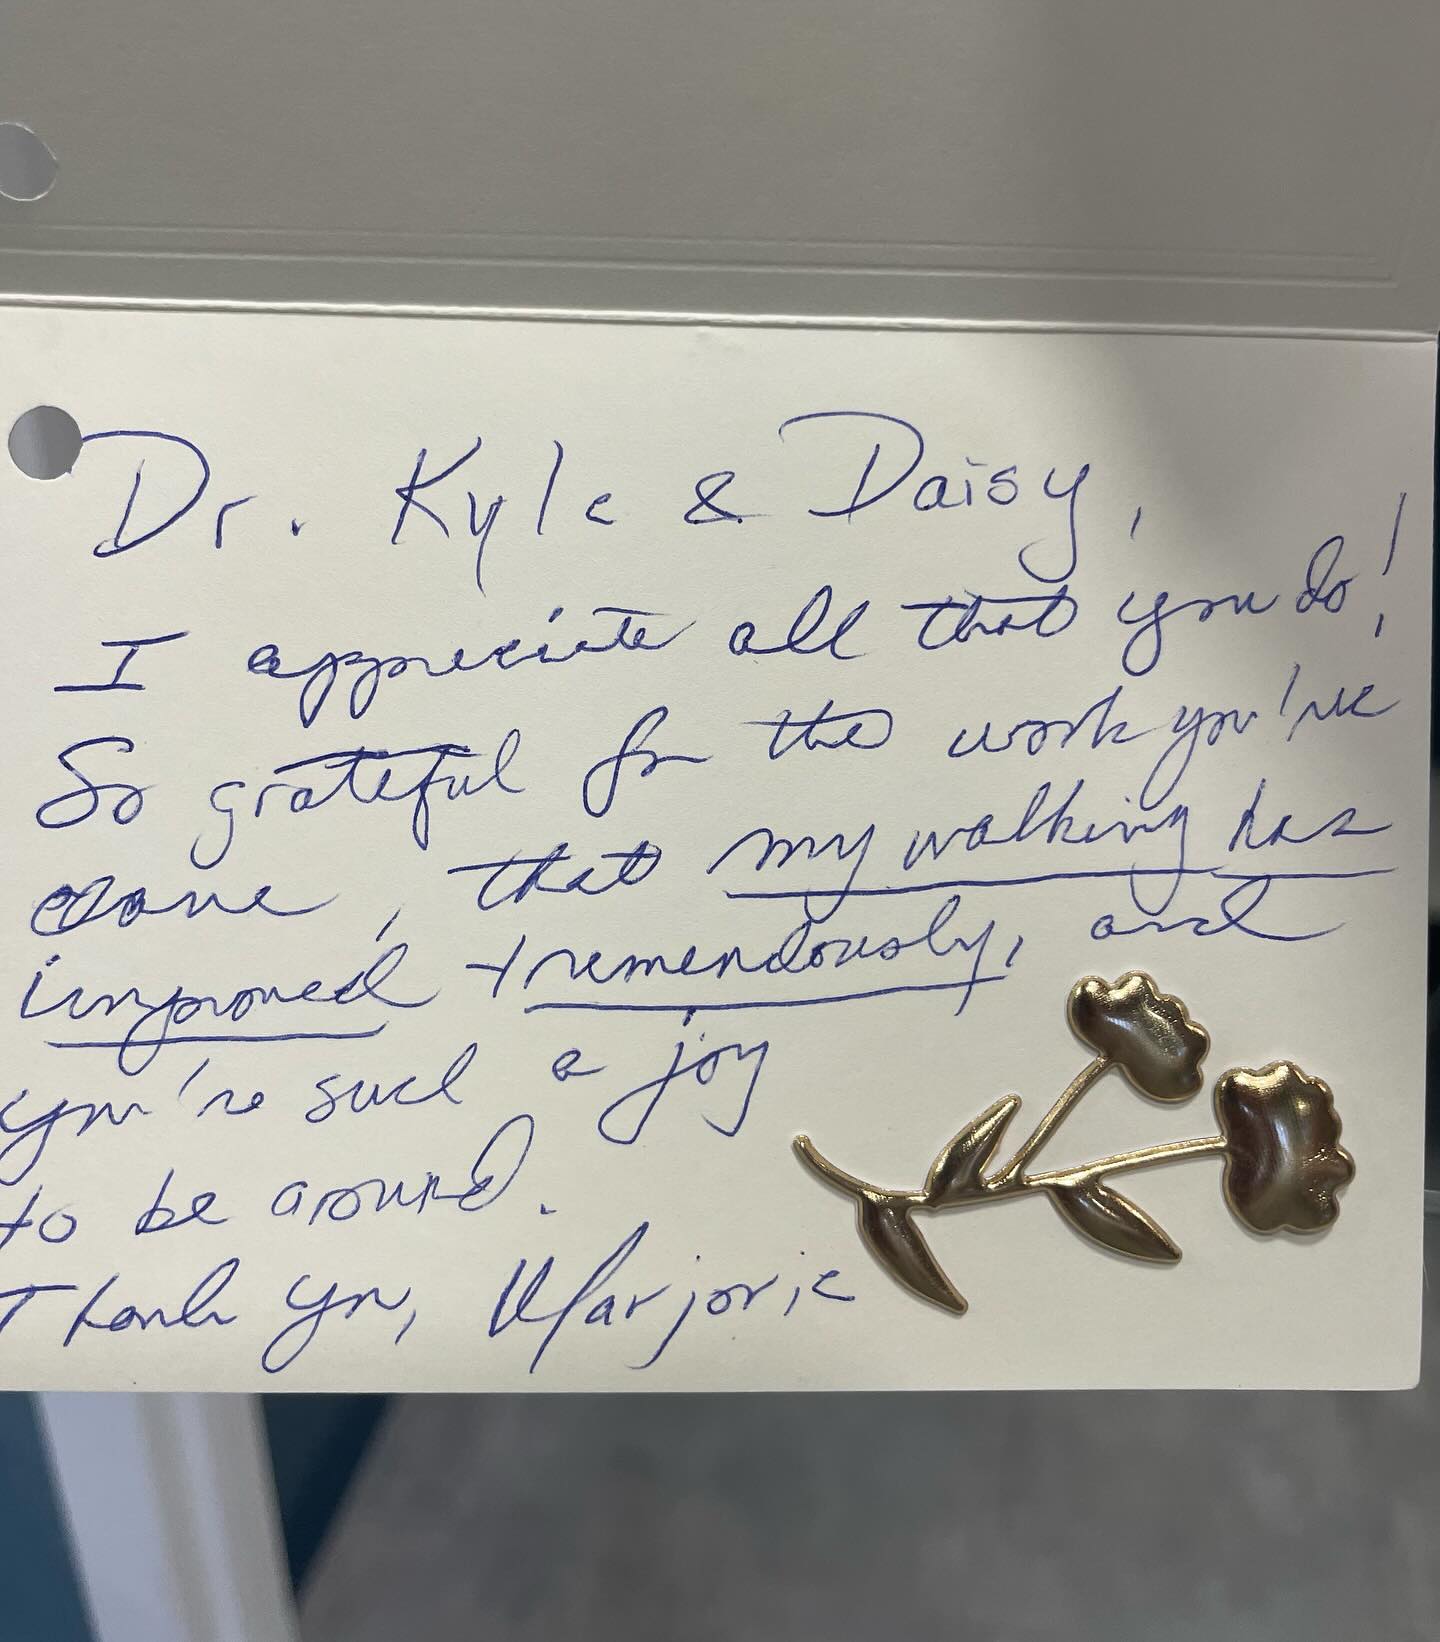 Dr. Kyle & Daisy,
I appreciate all that you do!
So grateful for the work you've
done, that my walking has
improved tremendously, and
you're such a joy
to be around.
Thank you, Marjorie